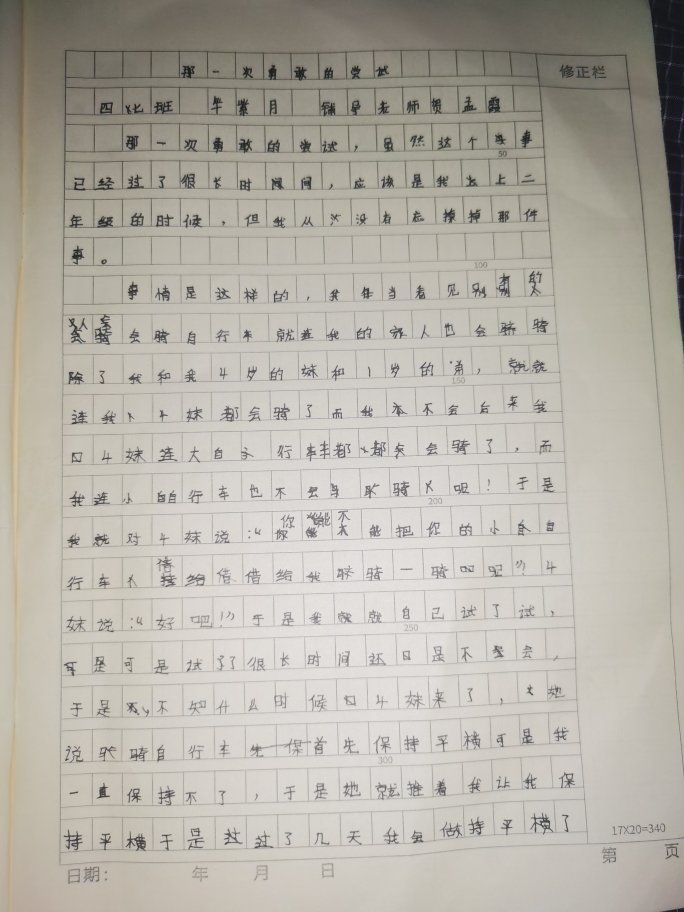 那一次勇敢的尝试
修正栏
四 班 牟紫月 辅导老师贺孟霞
那一次勇敢的尝试，虽然这个事
50
已经过了很长时间，应该是我上二
年级的时候，但我从没有忘掉那件
事。
100
事情是这样的，我当看见别的人
会骑自行车就连我的家人也会骑
除了我和我4岁的妹和1岁的弟，就
150
连我4妹都会骑了而我本不会后来我
4妹连大自行车都会骑了，而
我连小自行车也不会骑呢！于是
200
我就对4妹说：“你能不能把你的小自
行车借给我骑一骑吧？”4
妹说：“好吧！”于是我就自己试了试，
250
可是可是试了了很长时间还是不会，
于是不知什么时候4妹来了，她
说骑自行车首先保持平横可是我
300
一直保持不了，于是她就推着我让我保
持平横于是过了几天我会做持平横了
17X20=340
日期： 年 月 日
第 页